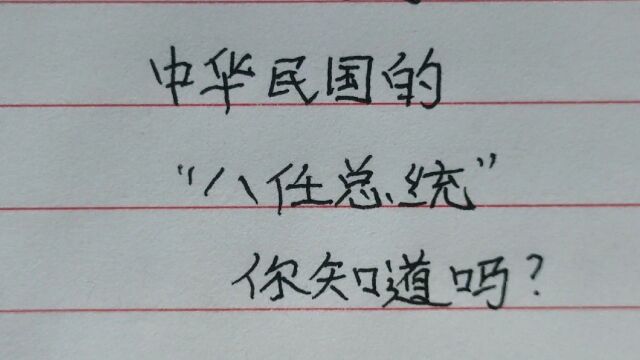 中华民国的
“八任总统”
你知道吗?